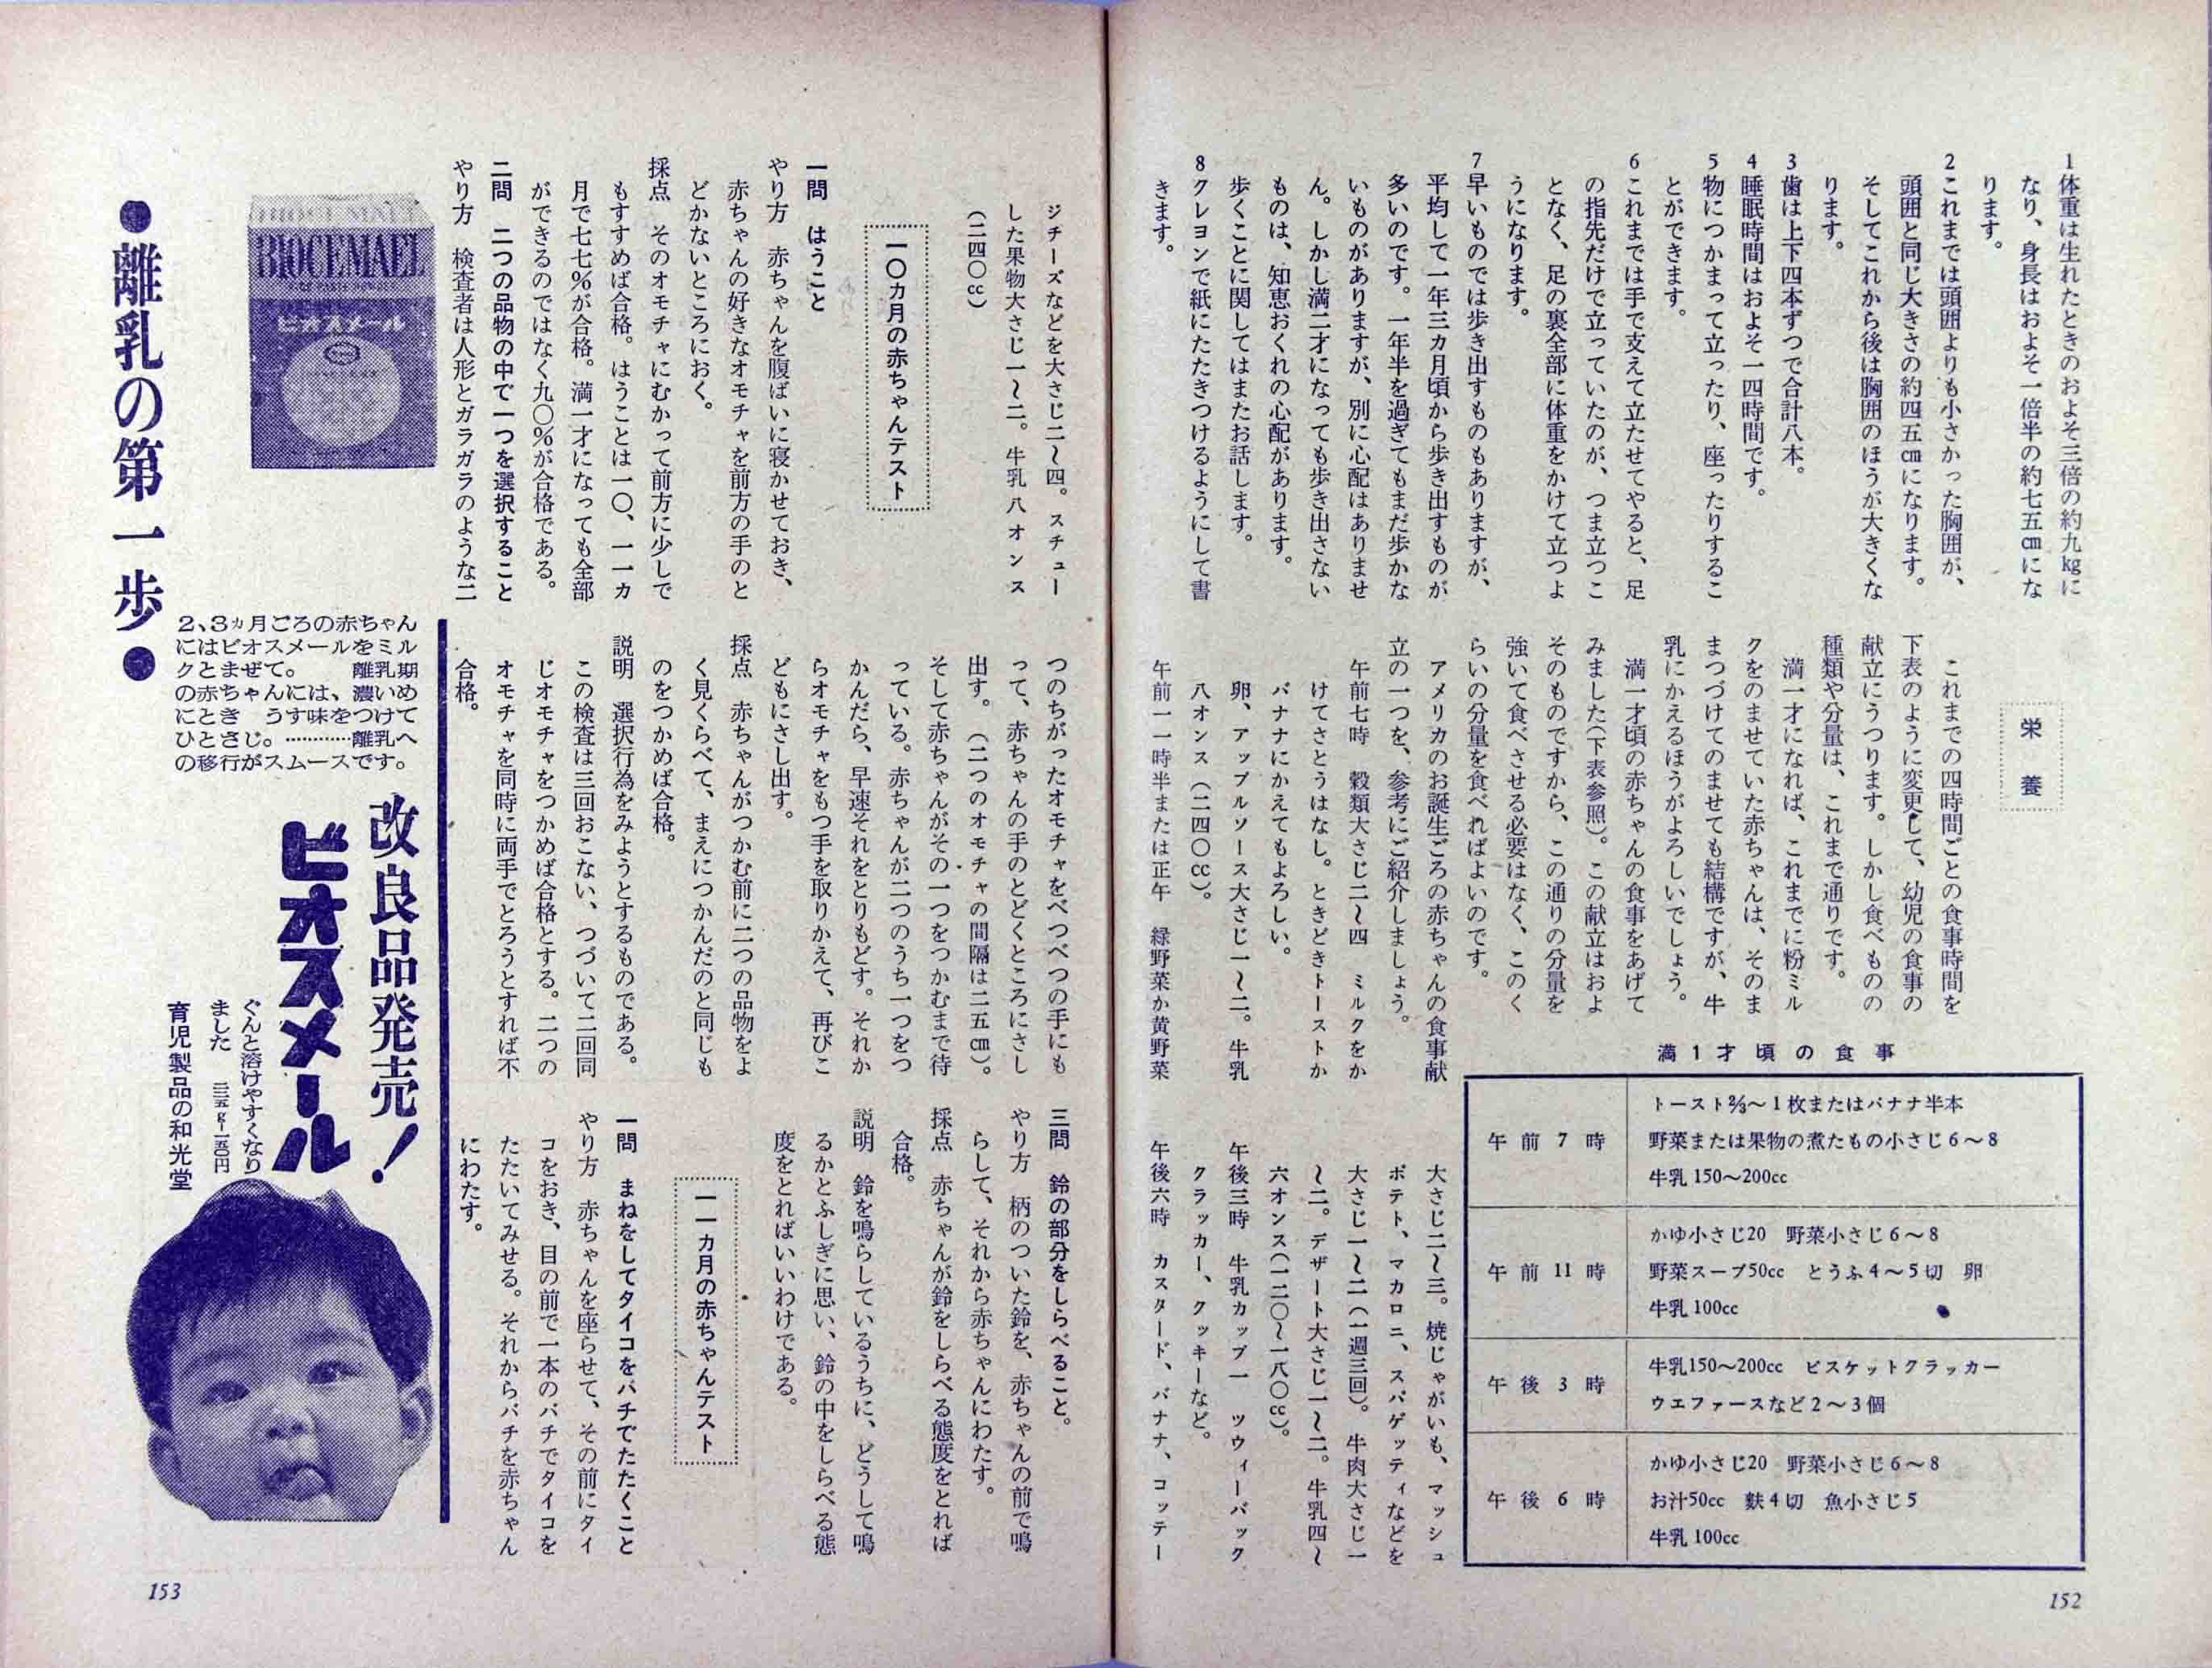 1 体重は生れたときのおよそ三倍の約九kgに
なり、身長はおよそ一倍半の約七五cmにな
ります。
2 これまでは頭囲よりも小さかった胸囲が、
頭囲と同じ大きさの約四五cmになります。
そしてこれから後は胸囲のほうが大きくな
ります。
3 歯は上下四本ずつで合計八本。
4 睡眠時間はおよそ一四時間です。
5 物につかまって立ったり、座ったりするこ
とができます。
6 これまでは手で支えて立たせてやると、足
の指先だけで立っていたのが、つま立つこ
となく、足の裏全部に体重をかけて立つよ
うになります。
7 早いものでは歩き出すものもありますが、
平均して一年三カ月頃から歩き出すものが
多いのです。一年半を過ぎてもまだ歩かな
いものがありますが、別に心配はありませ
ん。しかし満二才になっても歩き出さない
ものは、知恵おくれの心配があります。
歩くことに関してはまたお話します。
8 クレヨンで紙にたたきつけるようにして書
きます。
栄養
これまでの四時間ごとの食事時間を
下表のように変更して、幼児の食事の
献立にうつります。しかし食べものの
種類や分量は、これまで通りです。
満一才になれば、これまでに粉ミル
クをのませていた赤ちゃんは、そのま
まつづけてのませても結構ですが、牛
乳にかえるほうがよろしいでしょう。
満一才頃の赤ちゃんの食事をあげて
みました(下表参照)。この献立はおよ
そのものですから、この通りの分量を
強いて食べさせる必要はなく、このく
らいの分量を食べればよいのです。
アメリカのお誕生ごろの赤ちゃんの食事献
立の一つを、参考にご紹介しましょう。
午前七時 穀類大さじ二〜四 ミルクをか
けてさとうはなし。ときどきトーストか
バナナにかえてもよろしい。
卵、アップルソース大さじ一〜二。牛乳
八オンス(二四〇cc)。
午前一一時半または正午 緑野菜か黄野菜
満1才頃の食事
午前7時
トースト⅔〜1枚またはバナナ半本
野菜または果物の煮たもの小さじ6〜8
牛乳 150〜200cc
午前11時
かゆ小さじ20 野菜小さじ6〜8
野菜スープ50cc とうふ4〜5切 卵
牛乳 100cc
午後3時
牛乳150〜200cc ビスケットクラッカー
ウエファースなど2〜3個
午後6時
かゆ小さじ20 野菜小さじ6〜8
お汁50cc 麩4切 魚小さじ5
牛乳 100cc
大さじ二〜三。焼じゃがいも、マッシュ
ポテト、マカロニ、スパゲッティなどを
大さじ一〜二(一週三回)。牛肉大さじ一
〜二。デザート大さじ一〜二。牛乳四〜
六オンス(一二〇〜一八〇cc)。
午後三時 牛乳カップ一 ツウィーバック
クラッカー、クッキーなど。
午後六時 カスタード、バナナ、コッテー
152
ジチーズなどを大さじ二〜四。スチュー
した果物大さじ一〜二。牛乳八オンス
(二四〇cc)
一〇カ月の赤ちゃんテスト
一問 はうこと
やり方 赤ちゃんを腹ばいに寝かせておき、
赤ちゃんの好きなオモチャを前方の手のと
どかないところにおく。
採点 そのオモチャにむかって前方に少しで
もすすめば合格。はうことは一〇、一一カ
月で七七%が合格。満一才になっても全部
ができるのではなく九〇%が合格である。
二問 二つの品物の中で一つを選択すること
やり方 検査者は人形とガラガラのような二
つのちがったオモチャをべつべつの手にも
って、赤ちゃんの手のとどくところにさし
出す。(二つのオモチャの間隔は二五cm)。
そして赤ちゃんがその一つをつかむまで待
っている。赤ちゃんが二つのうち一つをつ
かんだら、早速それをとりもどす。それか
らオモチャをもつ手を取りかえて、再びこ
どもにさし出す。
採点 赤ちゃんがつかむ前に二つの品物をよ
く見くらべて、まえにつかんだのと同じも
のをつかめば合格。
説明 選択行為をみようとするものである。
この検査は三回おこない、つづいて二回同
じオモチャをつかめば合格とする。二つの
オモチャを同時に両手でとろうとすれば不
合格。
三問 鈴の部分をしらべること。
やり方 柄のついた鈴を、赤ちゃんの前で鳴
らして、それから赤ちゃんにわたす。
採点 赤ちゃんが鈴をしらべる態度をとれば
合格。
説明 鈴を鳴らしているうちに、どうして鳴
るかとふしぎに思い、鈴の中をしらべる態
度をとればいいわけである。
一一カ月の赤ちゃんテスト
一問 まねをしてタイコをバチでたたくこと
やり方 赤ちゃんを座らせて、その前にタイ
コをおき、目の前で一本のバチでタイコを
たたいてみせる。それからバチを赤ちゃん
にわたす。
BIOCEMAEL
ビオスメール
●離乳の第一歩●
2、3ヵ月ごろの赤ちゃん
にはビオスメールをミル
クとまぜて。 離乳期
の赤ちゃんには、濃いめ
にとき うす味をつけて
ひとさじ。…………離乳へ
の移行がスムースです。
改良品発売!
ビオスメール
ぐんと溶けやすくなり
ました 三三五g-一五〇円
育児製品の和光堂
153